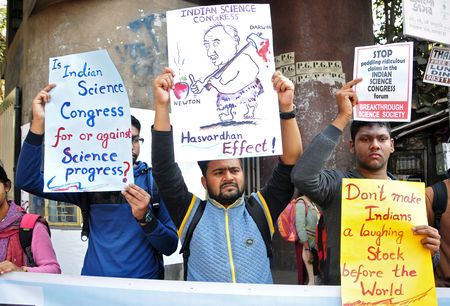 Is
Indian
Science
Congress
for or against
Science
progress?
INDIAN SCIENCE
CONGRESS
DARWIN
NEWTON
Hasvardhan
Effect!
STOP
peddling ridiculous
claims in the
INDIAN SCIENCE
CONGRESS
forum
BREAKTHROUGH
SCIENCE SOCIETY
Don't make
Indians
a laughing
Stock
before the
World
THANK